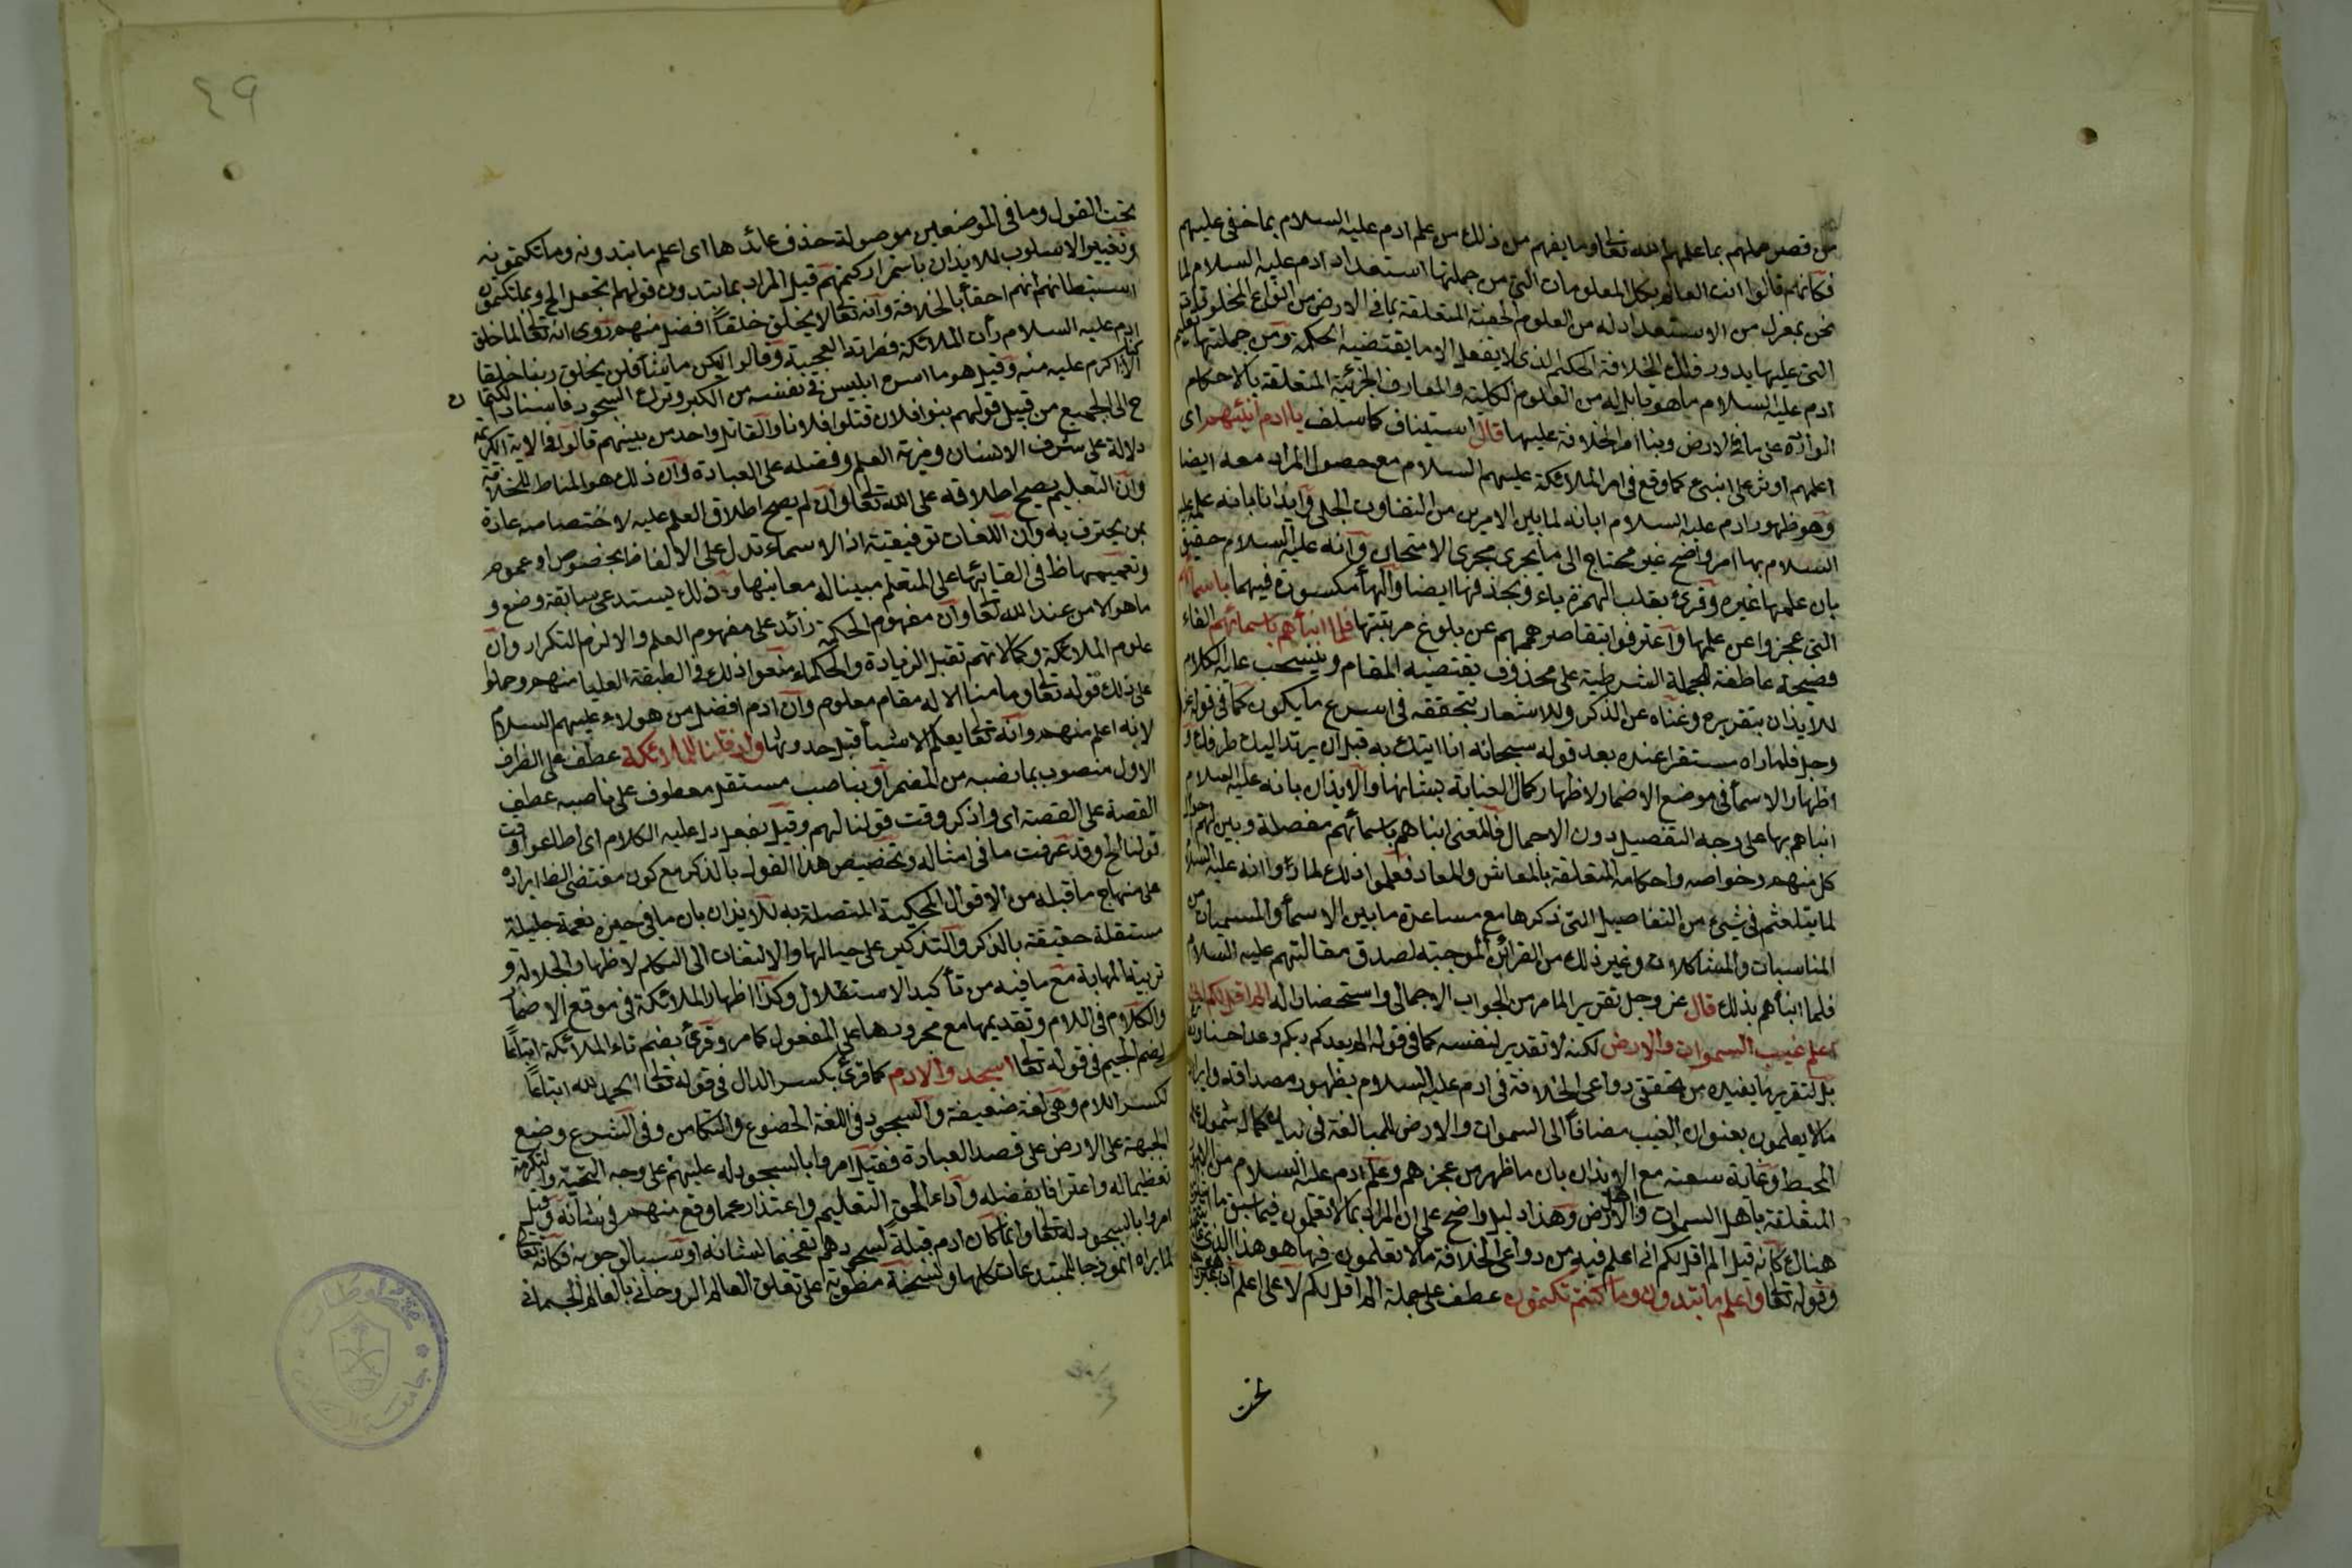 من قصر علمهم بما علمهم الله تعالى وما يفهم من ذلك من علم ادم عليه السلام بما خفى عليهم
فكانهم قالوا انت العالم بكل المعلومات التي من جملتها استعداد ادم عليه السلام لما
نحن بمعزل من الاستعداد له من العلوم الخفية المتعلقة بما في الارض من انواع المخلوقات
التي عليها يدور فلك الخلافة الحكيم الذي لا يفعل الا ما يقتضيه الحكمة ومن جملتها تعليم
ادم عليه السلام ما هو قابل له من العلوم الكلية والمعارف الجزئية المتعلقة بالاحكام
الواردة على ما في الارض وبنا امر الخلافة عليها قال استيناف كما سلف يا ادم انبئهم اى
اعلمهم اوثر على انبئني كما وقع في امر الملائكة عليهم السلام مع حصول المراد معه ايضا
وهو ظهور ادم عليه السلام ابانه لما بين الامرين من التفاوت الجلي وايذانا بانه علمه عليه
السلام بها امر واضح غير محتاج الى ما يجرى مجرى الامتحان وانه عليه السلام حقيق
بان علمها غيره وقرئ بقلب الهمزة ياء وبحذفها ايضا والهأ مكسورة فيهما باسمائهم
التي عجزوا عن علمها واعترفوا بتقاصر هممهم عن بلوغ مرتبتها فلما انباهم باسمائهم الفاء
فصيحة عاطفة للجملة الشرطية على محذوف يقتضيه المقام وينسحب عليه الكلام
للايذان بتقرره وغناه عن الذكر وللاشعار بتحققه في اسرع ما يكون كما في قوله عز
وجل فلما راه مستقرا عنده بعد قوله سبحانه انا اتيك به قبل ان يرتد اليك طرفك و
اظهار الاسمأ في موضع الاضمار لاظهار كمال العناية بشانها والايذان بانه عليه السلام
انباهم بها على وجه التفصيل دون الاجمال فالمعنى انباهم باسمائهم مفصلة وبين لهم احوال
كل منهم وخواصه واحكامه المتعلقة بالمعاش والمعاد فعلموا ذلك لما راوا انه عليه السلام
لم يتلعثم في شيئ من التفاصيل التي ذكرها مع مساعدة ما بين الاسمأ والمسميات من
المناسبات والمشاكلات وغير ذلك من القرائن الموجبة لصدق مقالتهم عليه السلام
فلما انبأهم بذلك قال عز وجل تقرير المامر من الجواب الاجمالى واستحضارا له الم اقل لكم انى
اعلم غيب السموات والارض لكن لا تقدير لنفسه كما في قوله الم يعدكم ربكم وعدا حسنا
بل لتقرير ما يفيده من تحقق دواعى الخلافة في ادم عليه السلام بظهور مصداقه وايراد
ما لا يعلمون بعنوان الغيب مضافا الى السموات والارض للمبالغة في بيان كمال شمول علمه
المحيط وغاية سعته مع الايذان بان ما ظهر من عجزهم وعلم ادم عليه السلام من الامور
المتعلقة باهل السموات واهل الارض وهذا دليل واضح على ان المراد بما لا تعلمون فيما سبق
هنالك كانه قيل الم اقل لكم انى اعلم فيه من دواعى الخلافة ما لا تعلمون فيها هو هذا الذي
وقوله تعالى واعلم ما تبدون وما كنتم تكتمون عطف على جملة الم اقل لكم لا على اعلم
تحت
٤٩
تحت القول وما في الموضعين موصولة حذف عائدها اى اعلم ما تبدونه وما تكتمونه
وتغيير الاسلوب للايذان باستمرار كتمهم قيل المراد بما يتدون قولهم اتجعل الخ وبما تكتمون
استبطانهم انهم احقأ بالخلافة وانه تعالى لا يخلق خلقاً افضل منهم روى انه تعالى لما خلق
ادم عليه السلام رأت الملائكة فطرته العجيبة وقالوا ليكن ما شأ فلن يخلق ربنا خلقا
الا كنا اكرم عليه منه وقيل هو ما اسره ابليس في نفسه من الكبر وترك السجود فاسناد الكتمان
ح الى الجميع من قبيل قولهم بنو افلان قتلوا فلانا والقاتل واحد من بينهم قالوا وفى الاية الكريمة
دلالة على شرف الانسان ومزية العلم وفضله على العبادة وان ذلك هو المناط للخلافة
وان التعليم يصح اطلاقه على الله تعالى وان لم يصح اطلاق المعلم عليه لاختصاصه عادة
بمن يحترف به وان اللغات توقيفية اذ الاسماء تدل على الالفاظ بخصوص او عموم
وتعليمها ظ في القائها على المتعلم مبينا له معانيها وذلك يستدعي سابقة وضع و
ما هو الا من عند الله تعالى وان مفهوم الحكمة زائد على مفهوم العلم والا لزم التكرار وان
علوم الملائكة وكمالاتهم تقبل الزيادة والحكماء منعوا ذلك في الطبقة العليا منهم وحملوا
على ذلك قوله تعالى وما منا الا له مقام معلوم وان ادم افضل من هولاء عليهم السلام
لانه اعلم منهم وانه تعالى يعلم الاشيأ قبل حدوثها واذ قلنا للملائكة عطف على الظرف
الاول منصوب بما نصبه من المضمر او بناصب مستقل معطوف على ناصبه عطف
القصة على القصة اى واذكر وقت قولنا لهم وقيل بفعل دل عليه الكلام اى اطاعوا وقت
قولنا الخ وقد عرفت ما في امثاله وتخصيص هذا القول بالذكر مع كون مقتضى الظ ايراده
على منهاج ما قبله من الاقوال المحكية المتصلة به للايذان بان ما في حيزه نعمة جليلة
مستقلة حقيقة بالذكر والتذكير على حيالها والالتفات الى التكلم لاظهار الجلالة و
تربية المهابة مع ما فيه من تأكيد الاستقلال وكذا اظهار الملائكة في موقع الاضمار
والكلام في اللام وتقديمها مع مجرورها على المفعول كما مر وقرئ بضم تاء الملائكة اتباعًا
لضم الجيم في قوله تعالى اسجدوا لادم كما قرئ بكسر الدال في قوله تعالى الحمد لله اتباعًا
لكسر اللام وهى لغة ضعيفة والسجود في اللغة الخضوع والتطامن وفى الشرع وضع
الجبهة على الارض على قصد العبادة فقيل امروا بالسجود له عليهم على وجه التحية والتكرمة
تعظيما له واعترافا بفضله وآداء لحق التعليم واعتذارا عما وقع منهم في شانه وقيل
امروا بالسجود له تعالى وانما كان ادم قبلة لسجودهم تفخيما لشانه او سببا لوجوبه فكانه تعالى
لما براه انموذجا للمبتدعات كلها ونسخة منطوية على تعلق العالم الروحانى بالعالم الجسمانى